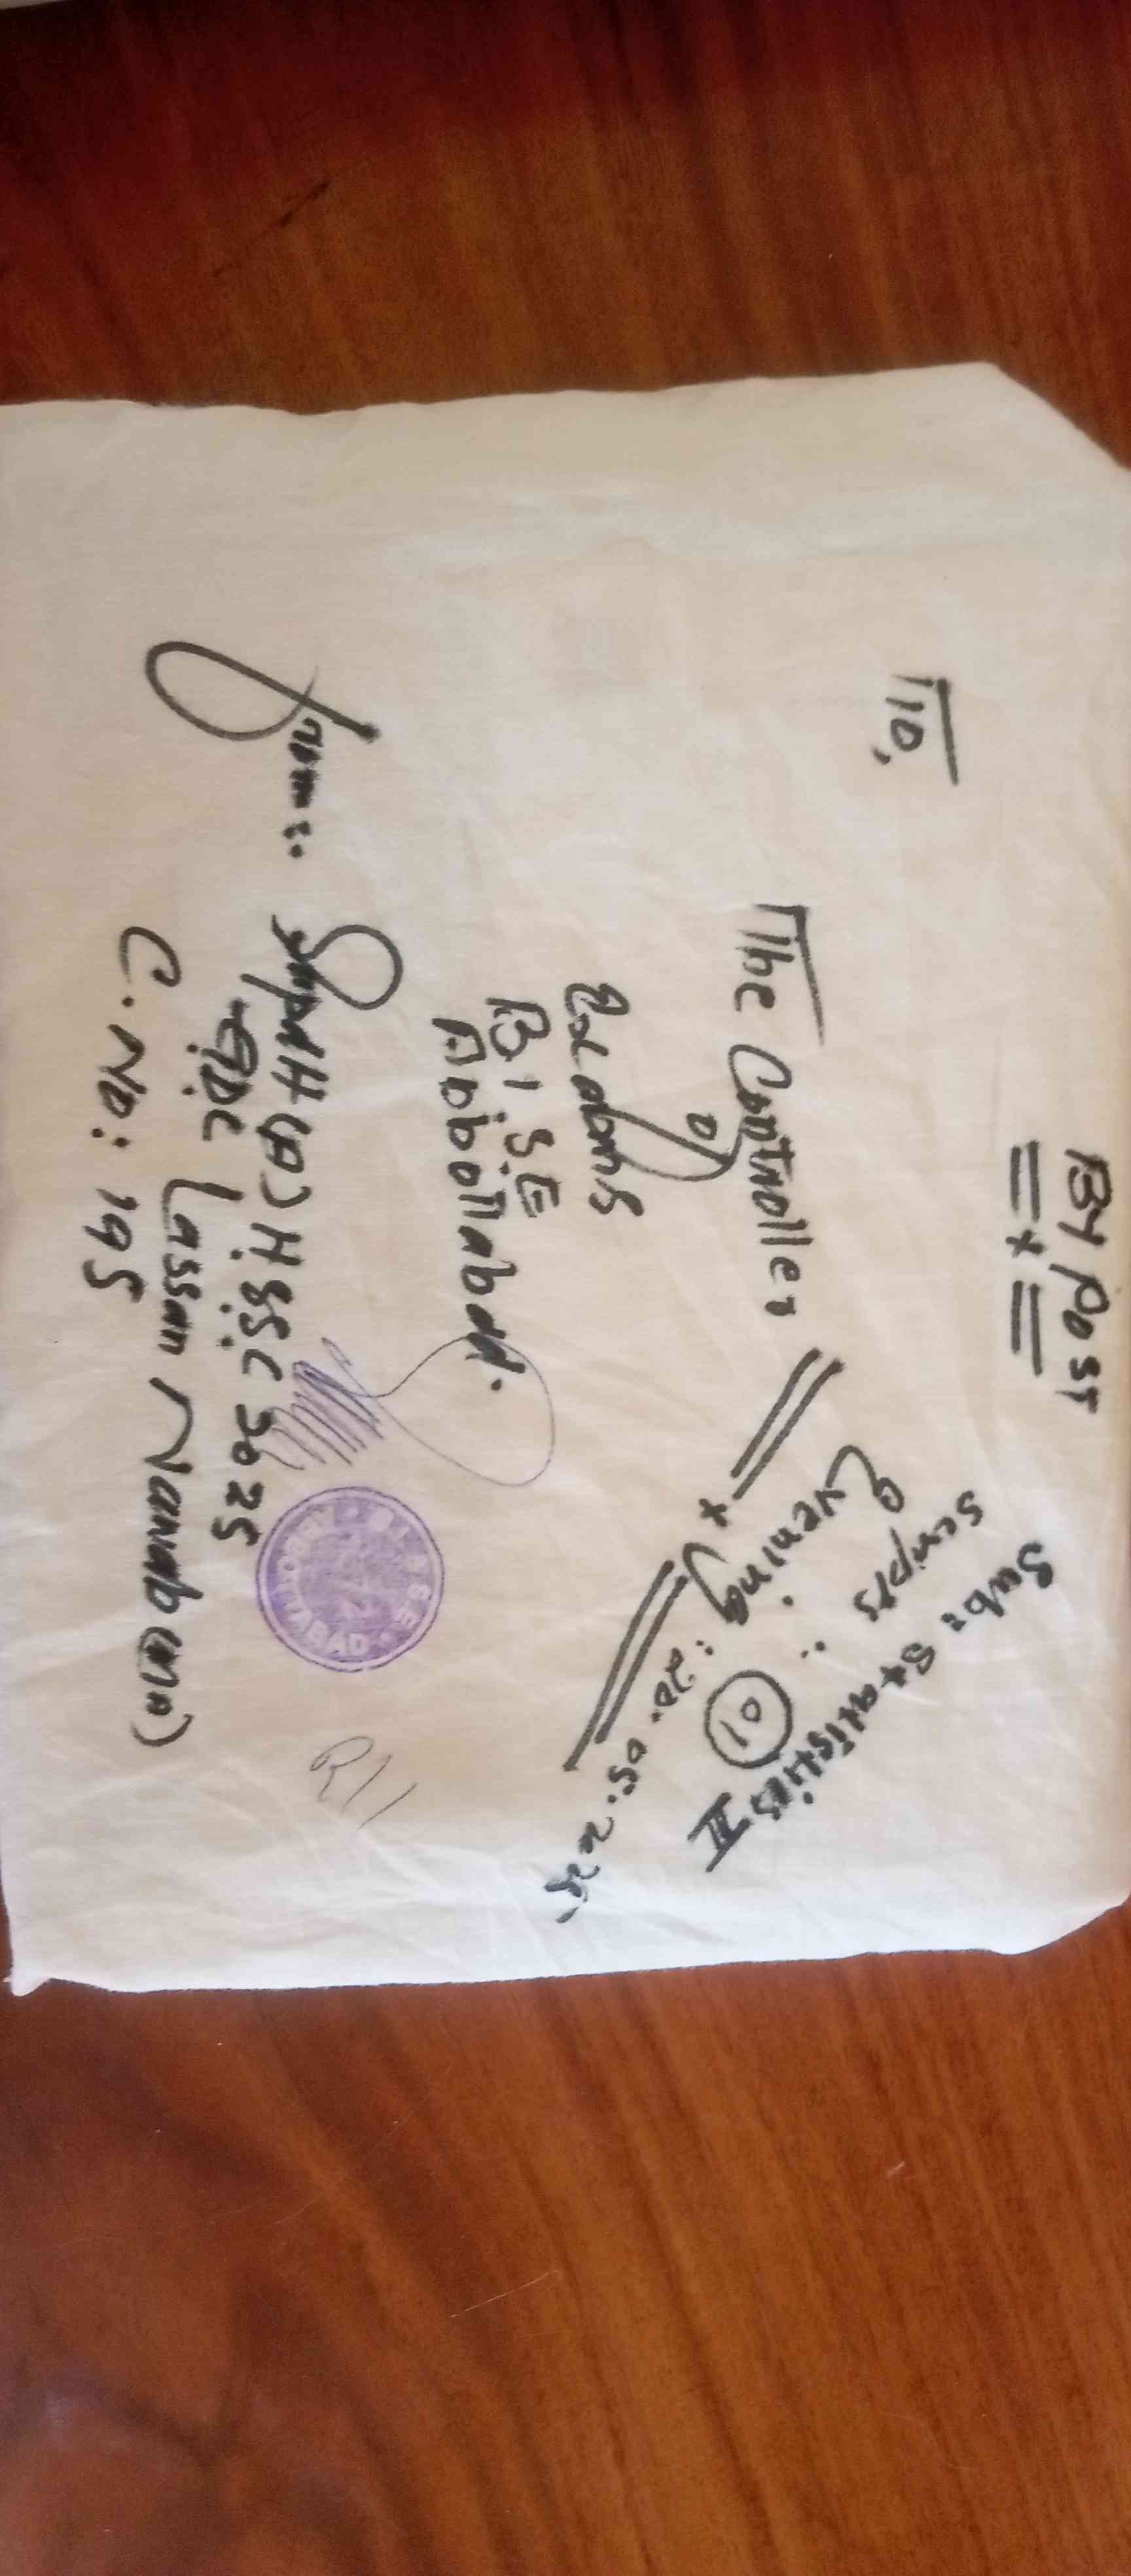 By Post
To,
The Controller
of
Exams
B.I.S.E
Abbottabad.
Sub: Statistics II
Scripts : 01
Evening : 20.05.2025
From: Supdtt (A) H.SSC 2025
GDC Lassan Nawab (Mn)
C. No: 195
B.I.S.E
R11